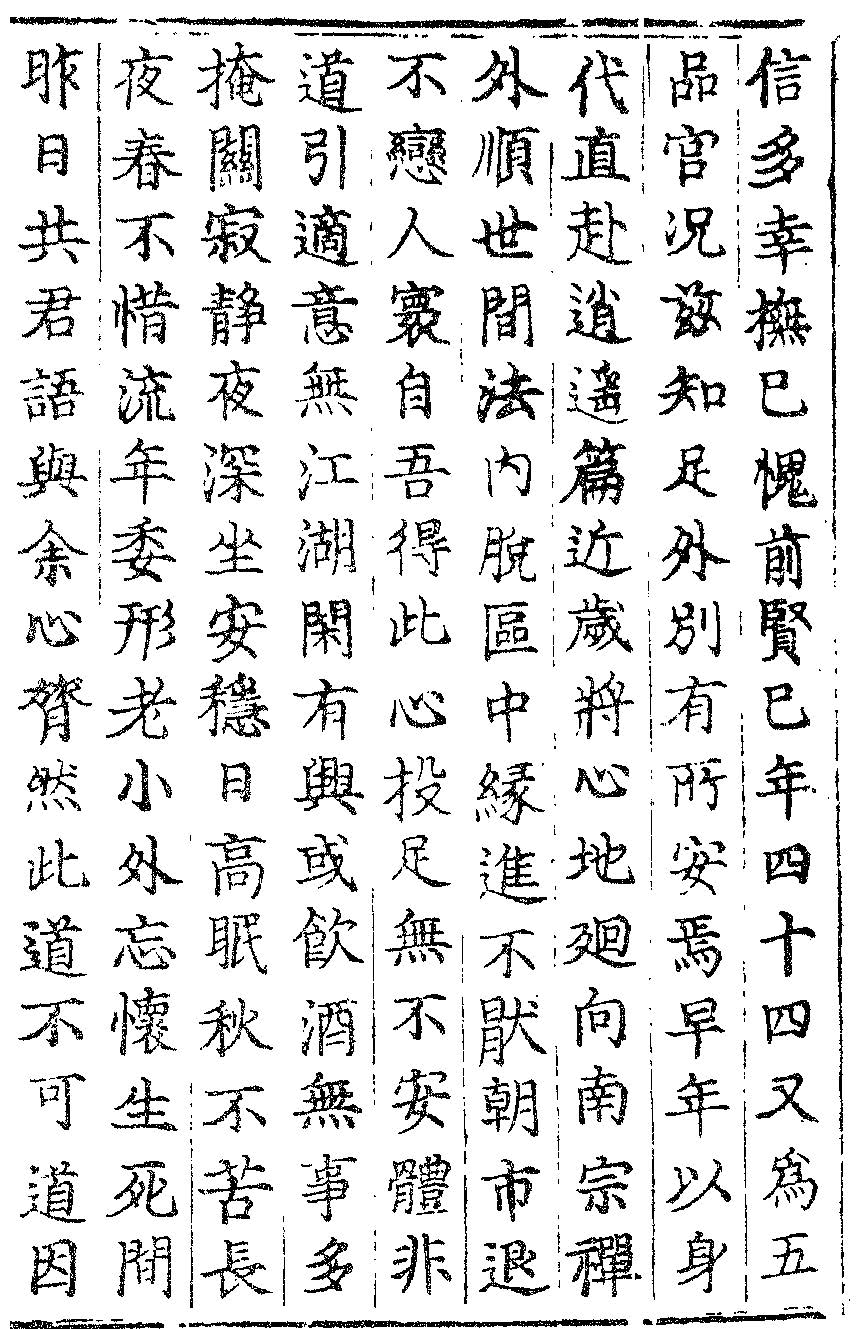 信多幸撫已愧前賢已年四十四又爲五
品官况兹知足外別有所安焉早年以身
代直赴逍遥篇近歲將心地廻向南宗禪
外順世間法内脫區中緣進不猒朝市退
不戀人寰自吾得此心投足無不安體非
道引適意無江湖閑有興或飲酒無事多
掩關寂静夜深坐安穩日高眠秋不苦長
夜春不惜流年委形老小外忘懷生死間
昨日共君語與余心膂然此道不可道因